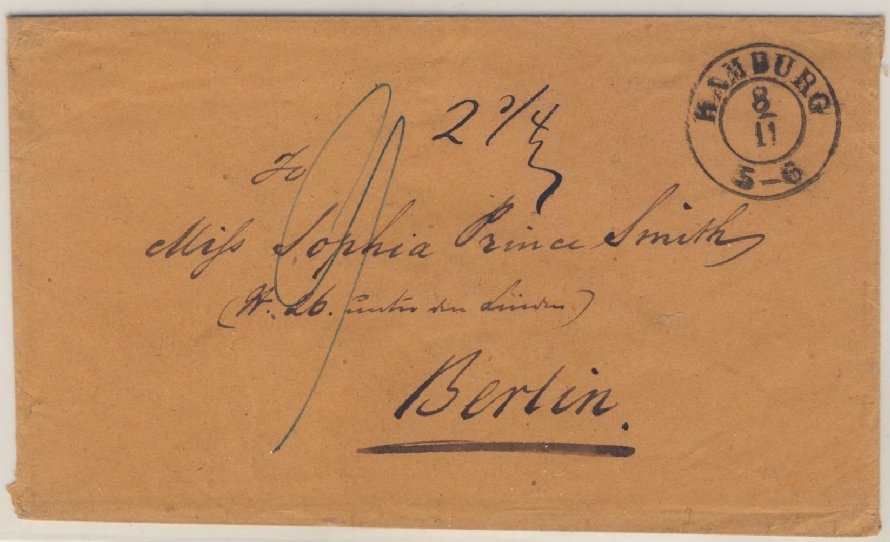 HAMBURG
8/11
5-6
2 3/4
To
Miss Sophia Prince Smith
(N. 26. unter den Linden)
Berlin.